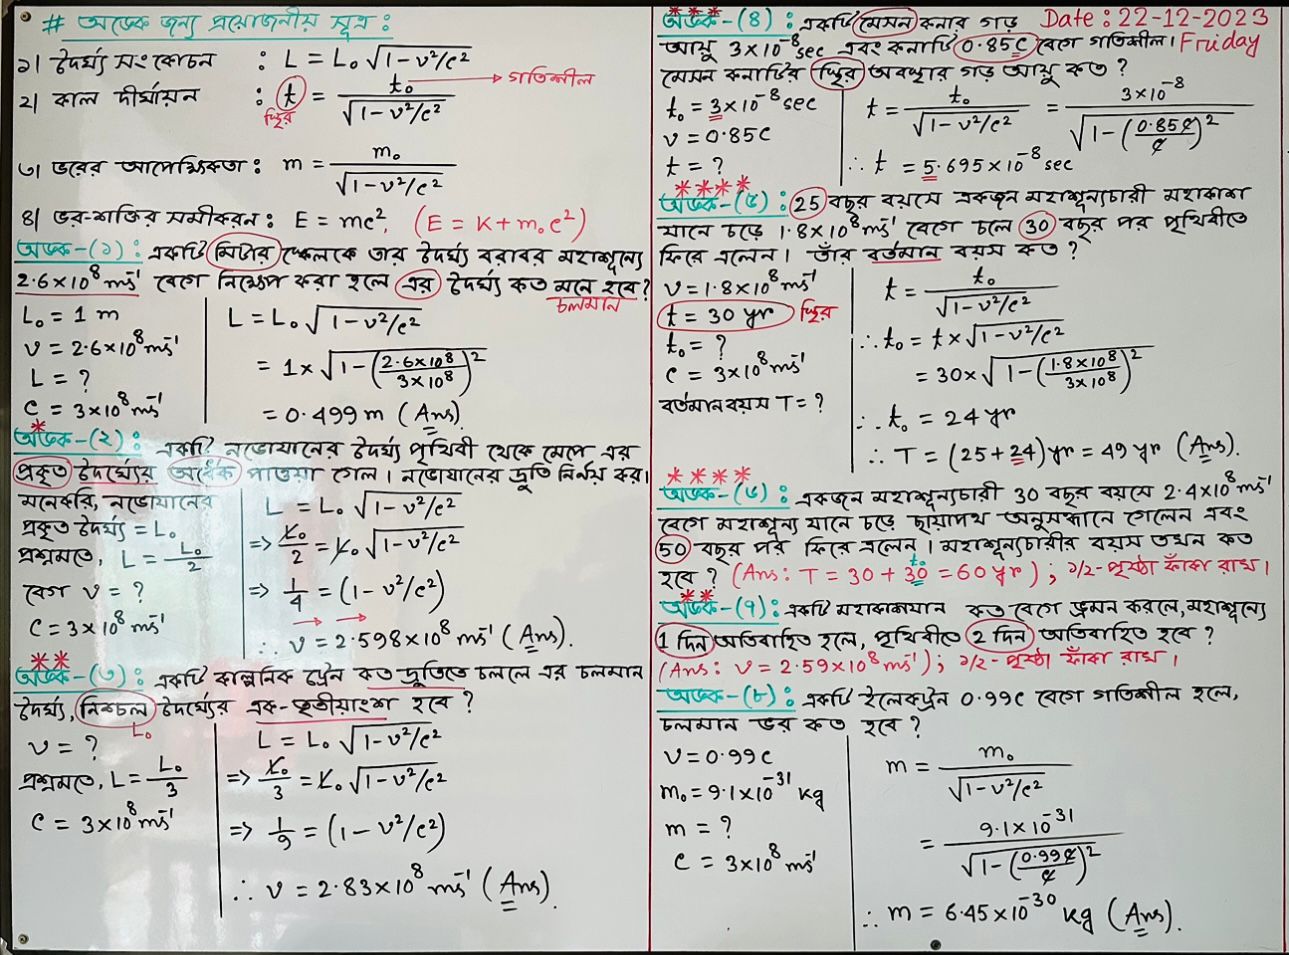 # অংকের জন্য প্রয়োজনীয় সূত্র :
১। দৈর্ঘ্য সংকোচন : L = L₀ √1-v²/c²
২। কাল দীর্ঘায়ন : t = t₀ / √1-v²/c² → গতিশীল
স্থির
৩। ভরের আপেক্ষিকতা : m = m₀ / √1-v²/c²
৪। ভর-শক্তির সমীকরণ : E = mc², (E = K + m₀c²)
অংক-(১) : একটি মিটার স্কেলকে তার দৈর্ঘ্য বরাবর মহাশূন্যে
2.6×10⁸ ms⁻¹ বেগে নিক্ষেপ করা হলে এর দৈর্ঘ্য কত মনে হবে?
চলমান
L₀ = 1 m
v = 2.6×10⁸ ms⁻¹
L = ?
c = 3×10⁸ ms⁻¹
L = L₀ √1-v²/c²
= 1× √1-(2.6×10⁸/3×10⁸)²
= 0.499 m (Ans).
*
অংক-(২) : একটি নভোযানের দৈর্ঘ্য পৃথিবী থেকে মেপে এর
প্রকৃত দৈর্ঘ্যের অর্ধেক পাওয়া গেল। নভোযানের দ্রুতি নির্ণয় কর।
মনেকরি, নভোযানের
প্রকৃত দৈর্ঘ্য = L₀
প্রশ্নমতে, L = L₀/2
বেগ v = ?
c = 3×10⁸ ms⁻¹
L = L₀ √1-v²/c²
=> L₀/2 = L₀ √1-v²/c²
=> 1/4 = (1-v²/c²)
∴ v = 2.598×10⁸ ms⁻¹ (Ans).
**
অংক-(৩) : একটি কাল্পনিক ট্রেন কত দ্রুতিতে চললে এর চলমান
দৈর্ঘ্য, নিশ্চল দৈর্ঘ্যের এক-তৃতীয়াংশ হবে?
L₀
v = ?
প্রশ্নমতে, L = L₀/3
c = 3×10⁸ ms⁻¹
L = L₀ √1-v²/c²
=> L₀/3 = L₀ √1-v²/c²
=> 1/9 = (1-v²/c²)
∴ v = 2.83×10⁸ ms⁻¹ (Ans).
***
অংক-(৪) : একটি মেসন কনার গড় Date : 22-12-2023
আয়ু 3×10⁻⁸ sec এবং কনাটি 0.85c বেগে গতিশীল। Friday
মেসন কনাটির স্থির অবস্থার গড় আয়ু কত?
t₀ = 3×10⁻⁸ sec
v = 0.85c
t = ?
t = t₀ / √1-v²/c² = 3×10⁻⁸ / √1-(0.85c/c)²
∴ t = 5.695×10⁻⁸ sec
****
অংক-(৫) : 25 বছর বয়সে একজন মহাশূন্যচারী মহাকাশ
যানে চড়ে 1.8×10⁸ ms⁻¹ বেগে চলে 30 বছর পর পৃথিবীতে
ফিরে এলেন। তাঁর বর্তমান বয়স কত?
v = 1.8×10⁸ ms⁻¹
t = 30 yr স্থির
t₀ = ?
c = 3×10⁸ ms⁻¹
বর্তমান বয়স T = ?
t = t₀ / √1-v²/c²
∴ t₀ = t × √1-v²/c²
= 30× √1-(1.8×10⁸/3×10⁸)²
∴ t₀ = 24 yr
∴ T = (25+24) yr = 49 yr (Ans).
****
অংক-(৬) : একজন মহাশূন্যচারী 30 বছর বয়সে 2.4×10⁸ ms⁻¹
বেগে মহাশূন্য যানে চড়ে ছায়াপথ অনুসন্ধানে গেলেন এবং
50 বছর পর ফিরে এলেন। মহাশূন্যচারীর বয়স তখন কত
t₀
হবে? (Ans : T = 30 + 30 = 60 yr) ; ১/২-পৃষ্ঠা ফাঁকা রাখ।
**
অংক-(৭) : একটি মহাকাশযান কত বেগে ভ্রমন করলে, মহাশূন্যে
1 দিন অতিবাহিত হলে, পৃথিবীতে 2 দিন অতিবাহিত হবে?
(Ans : v = 2.59×10⁸ ms⁻¹) ; ১/২-পৃষ্ঠা ফাঁকা রাখ।
অংক-(৮) : একটি ইলেকট্রন 0.99c বেগে গতিশীল হলে,
চলমান ভর কত হবে?
v = 0.99c
m₀ = 9.1×10⁻³¹ kg
m = ?
c = 3×10⁸ ms⁻¹
m = m₀ / √1-v²/c²
= 9.1×10⁻³¹ / √1-(0.99c/c)²
∴ m = 6.45×10⁻³⁰ kg (Ans).